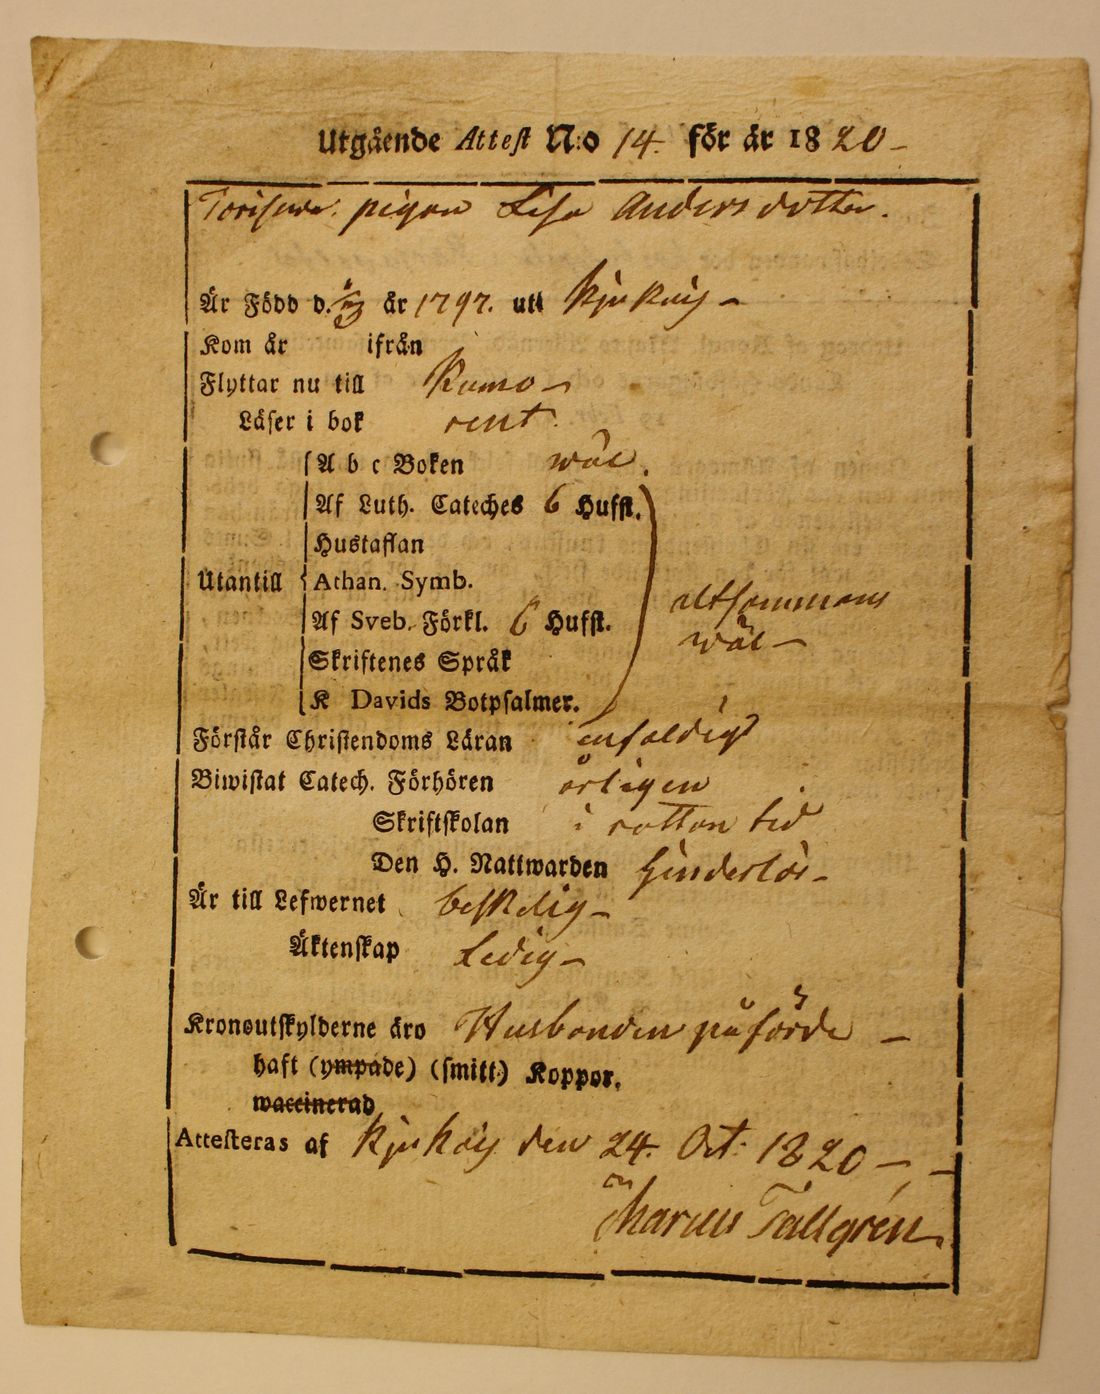 Utgående Attest N:o 14. för år 1820 –
pigan Lisa Andersdotter.
Är Född d. år 1797. uti Kjukais –
Kom år ifrån
Flyttar nu till Kumo –
Läser i bok rent.
A b c Boken wäl.
Af Luth. Cateches 6 Hufst.
Hustaflan
Utantill Athan. Symb.
altsammans
Af Sveb. Förkl. 6 Hufst.
wäl –
Skriftenes Språk
K Davids Botpsalmer.
Förstår Christendoms Läran enfaldigt
Biwistat Catech. Förhören årligen
Skriftskolan i rättan tid
Den H. Nattwarden hinderlös –
Är till Lefwernet beskelig –
Äktenskap Ledig –
Kronoutskylderne äro Husbonden påförde –
haft (ympade) (smitt.) Koppor.
waccinerad
Attesteras af Kjukais den 24. Oct. 1820 –
Marcus Tallgrén.